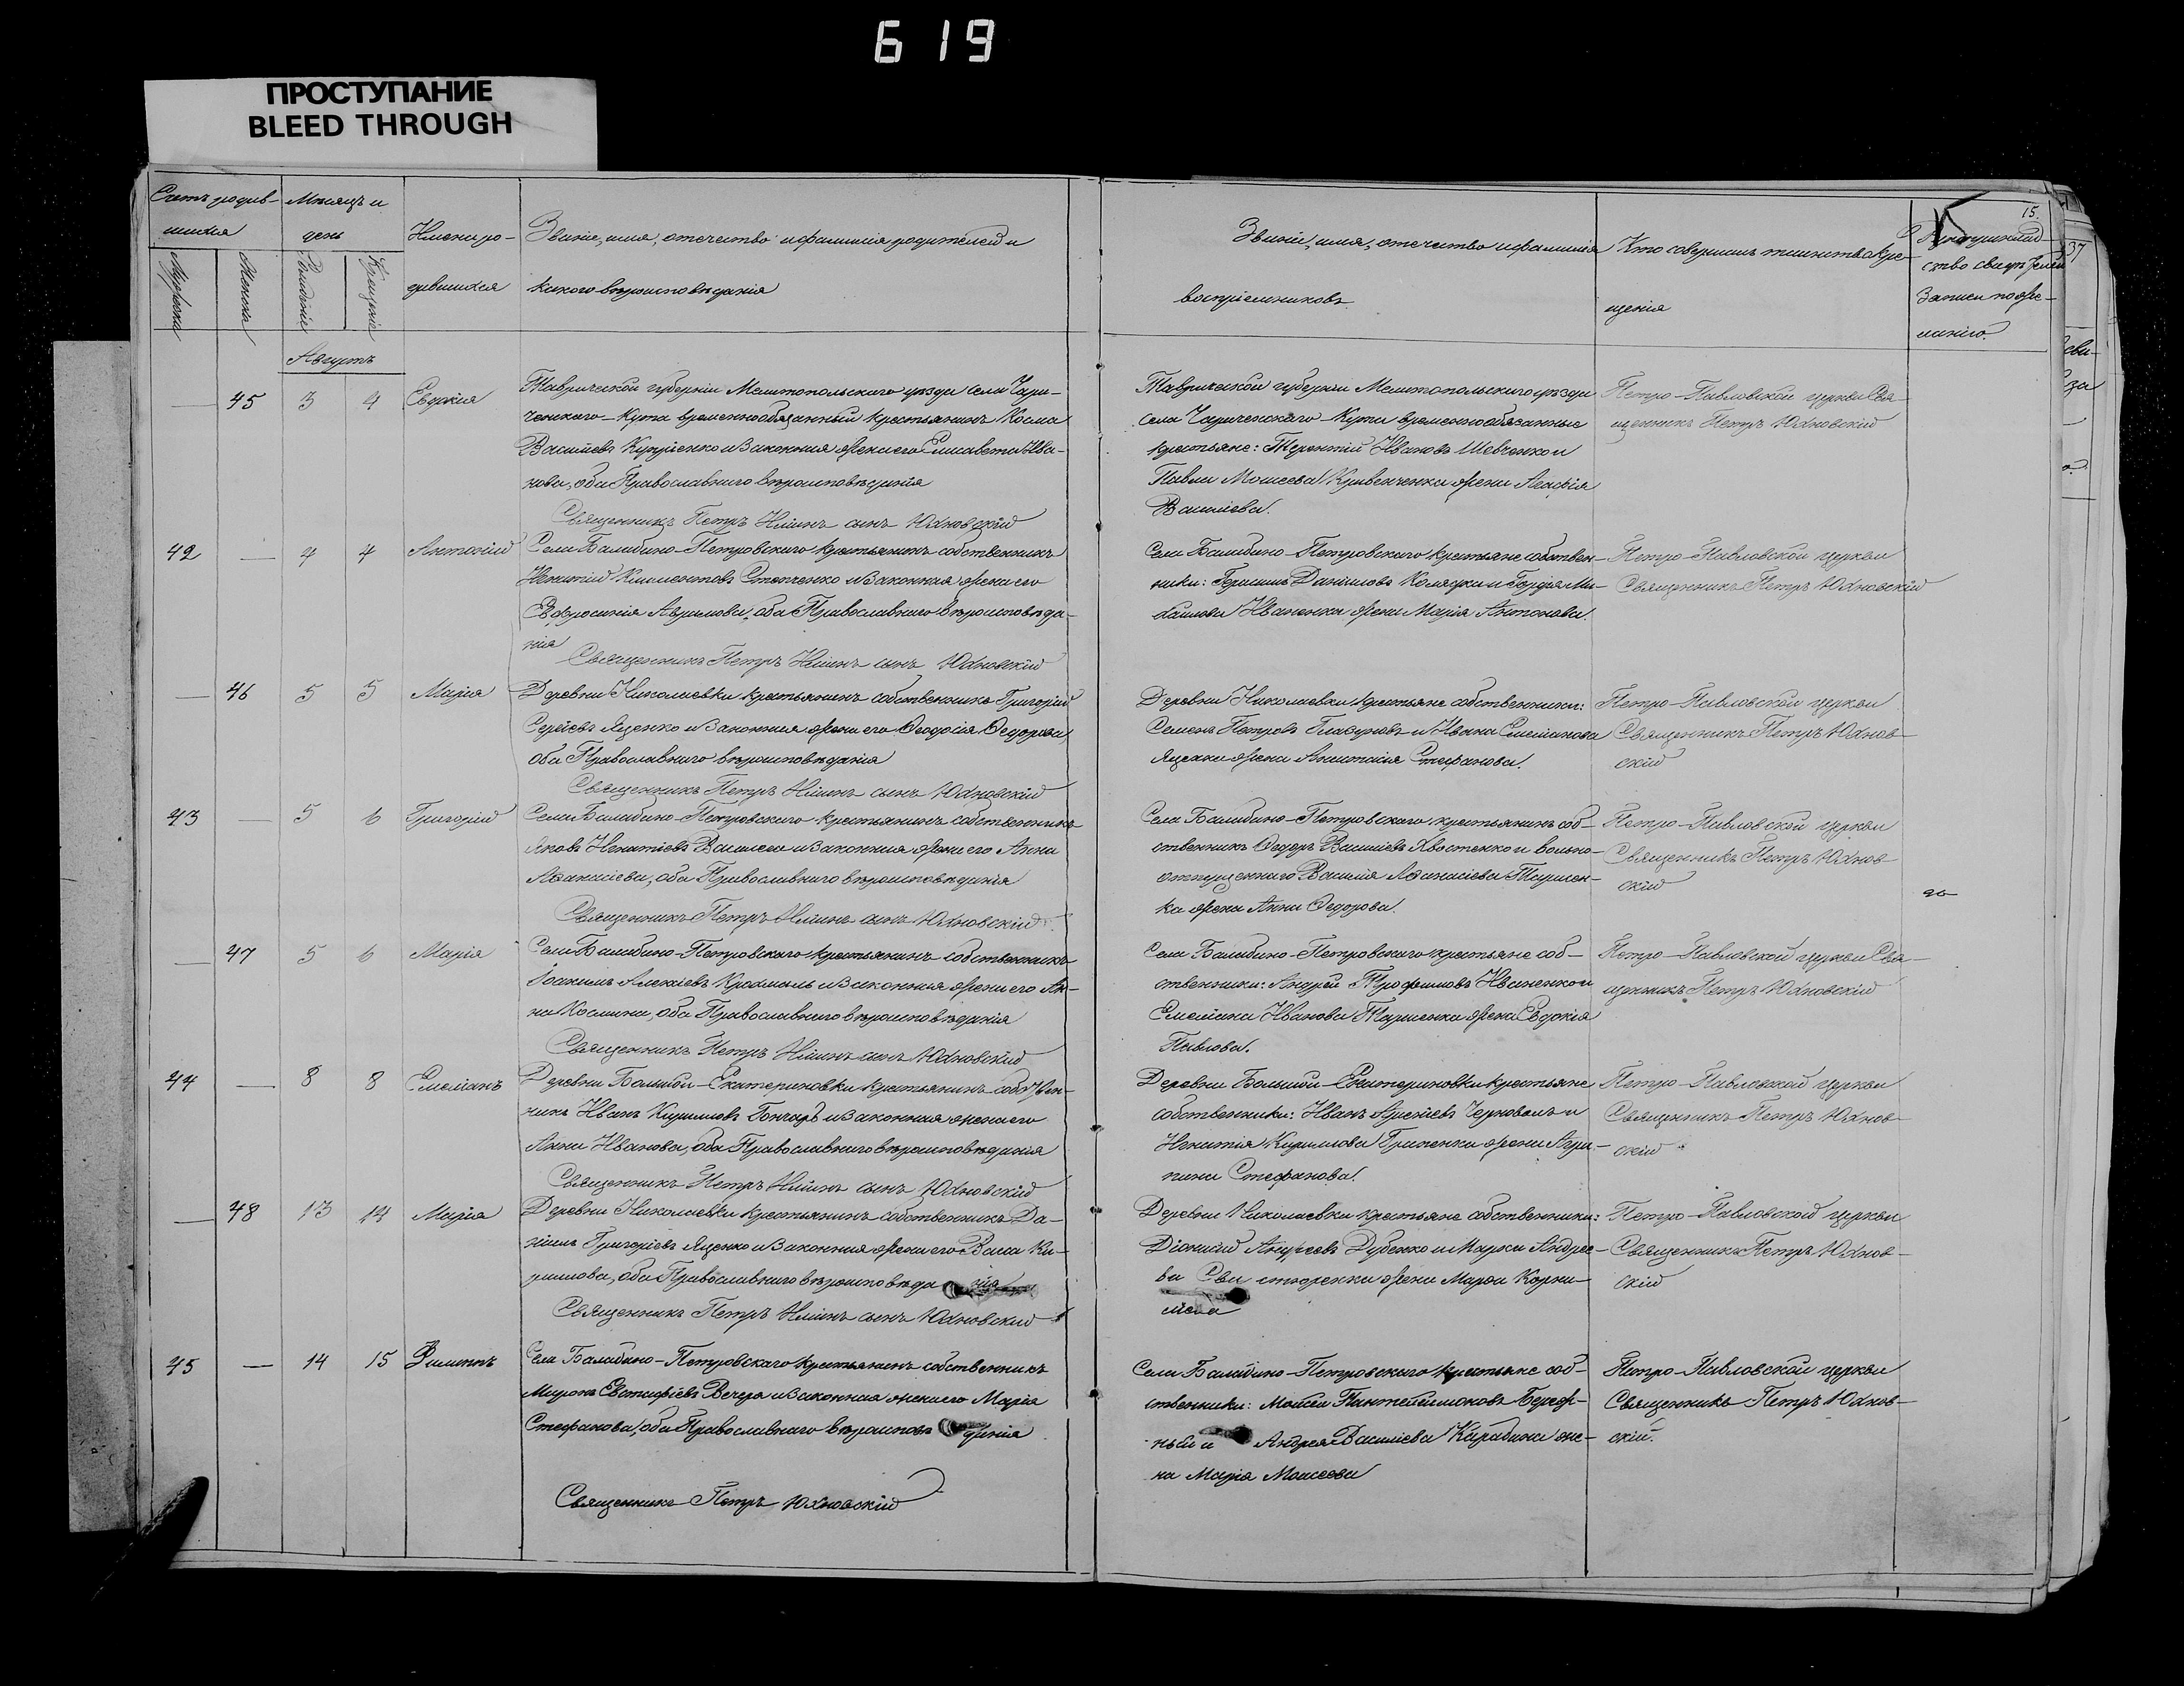 619
ПРОСТУПАНИЕ
BLEED THROUGH
Счетъ родив-
шихся
Мужеска
Женска
Мѣсяцъ и
день
Рожденіе
Крещеніе
Имена ро-
дившихся
Званіе, имя, отечество и фамилія родителей и
какого вѣроисповѣданія
Званіе, имя, отечество и фамилія
воспріемниковъ
Кто совершалъ таинство кре-
щенія
15.
Рукоприклад-
ство свидѣтелей
записи по же-
ланію.
Августъ
— 45 3 4 Евдокія
Таврической губерніи Мелитопольскаго уѣзда села Цари-
ченскаго-Кута временнообязанный крестьянинъ Косма
Василіевъ Купріенко и законная жена его Елисавета Ива-
нова, оба Православнаго вѣроисповѣданія
Священникъ Петръ Иліинъ сынъ Юхновскій
Таврической губерніи Мелитопольскаго уѣзда
села Цариченскаго-Кута временнообязанные
крестьяне: Терентій Ивановъ Шевченко и
Павла Моисеева Кривенченка жена Агафія
Василіева.
Петро-Павловской церкви Свя-
щенникъ Петръ Юхновскій
42 — 4 4 Антоній
Села Балабино-Петровскаго крестьянинъ собственникъ
Игнатій Климентовъ Степченко и законная жена его
Евфросинія Аврамова, оба Православнаго вѣроисповѣда-
нія
Священникъ Петръ Иліинъ сынъ Юхновскій
Села Балабино-Петровскаго крестьяне собствен-
ники: Герасимъ Даніиловъ Колядка и Гордѣя Ми-
хаилова Иваненка жена Марія Антонова.
Петро-Павловской церкви
Священникъ Петръ Юхновскій
— 46 5 5 Марія
Деревни Николаевки крестьянинъ собственникъ Григорій
Сергіевъ Яценко и законная жена его Феодосія Федорова,
оба Православнаго вѣроисповѣданія
Священникъ Петръ Иліинъ сынъ Юхновскій
Деревни Николаевки крестьяне собственники:
Семенъ Петровъ Глазуновъ и Ивана Емеліанова
Яценка жена Анастасія Стефанова.
Петро-Павловской церкви
Священникъ Петръ Юхнов-
скій
43 — 5 6 Григорій
Села Балабино-Петровскаго крестьянинъ собственникъ
Яковъ Игнатіевъ Василего и законная жена его Анна
Афанасіева, оба Православнаго вѣроисповѣданія
Священникъ Петръ Иліинъ сынъ Юхновскій
Села Балабино-Петровскаго крестьянинъ соб-
ственникъ Федоръ Василіевъ Хвостенко и вольно-
отпущеннаго Василія Афанасіева Тарасен-
ка жена Анна Федорова.
Петро-Павловской церкви
Священникъ Петръ Юхнов-
скій
— 47 5 6 Марія
Села Балабино-Петровскаго крестьянинъ собственникъ
Іоакимъ Алексіевъ Крохмаль и законная жена его Ан-
на Космина, оба Православнаго вѣроисповѣданія
Священникъ Петръ Иліинъ сынъ Юхновскій
Села Балабино-Петровскаго крестьяне соб-
ственники: Андрей Трофимовъ Иваненко и
Емеліана Иванова Тарасенка жена Евдокія
Павлова.
Петро-Павловской церкви Свя-
щенникъ Петръ Юхновскій
44 — 8 8 Емеліанъ
Деревни Большой-Екатериновки крестьянинъ собствен-
никъ Иванъ Кирилловъ Гончаръ и законная жена его
Анна Иванова, оба Православнаго вѣроисповѣданія
Священникъ Петръ Иліинъ сынъ Юхновскій
Деревни Большой-Екатериновки крестьяне
собственники: Иванъ Арсеніевъ Чорноволъ и
Игнатія Кириллова Гриценка жена Агри-
пина Стефанова.
Петро-Павловской церкви
Священникъ Петръ Юхнов-
скій
— 48 13 14 Марія
Деревни Николаевки крестьянинъ собственникъ Да-
ніилъ Григоріевъ Яценко и законная жена его Васса Ки-
рилова, оба Православнаго вѣроисповѣданія
Священникъ Петръ Иліинъ сынъ Юхновскій
Деревни Николаевки крестьяне собственники:
Діонисій Андреевъ Дубенко и Марка Андрее-
ва жена Марфа Корни-
ліева
Петро-Павловской церкви
Священникъ Петръ Юхнов-
скій
45 — 14 15 Филиппъ
Села Балабино-Петровскаго крестьянинъ собственникъ
Миронъ Евстафіевъ Вечера и законная жена его Марія
Стефанова, оба Православнаго вѣроисповѣданія
Священникъ Петръ Юхновскій
Села Балабино-Петровскаго крестьяне соб-
ственники: Моисей Пантелеимоновъ Береж-
ный и Андрея Василіева Карабина же-
на Марія Моисеева
Петро-Павловской церкви
Священникъ Петръ Юхнов-
скій.